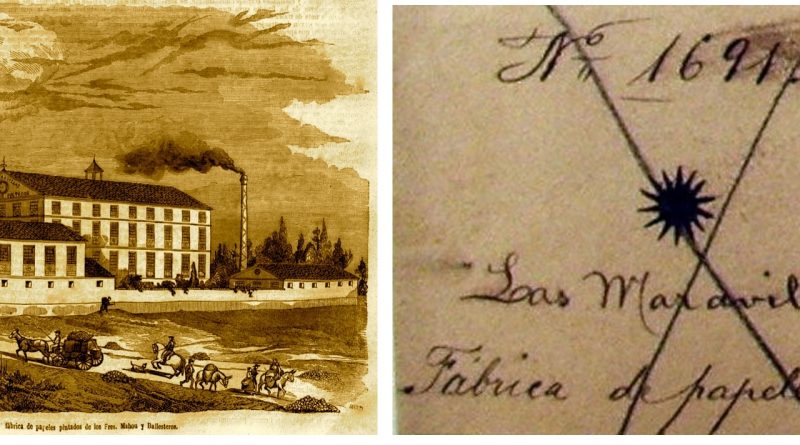 fábrica de papeles pintados de los Sres. Mahou y Ballesteros.
Nº 1691
Las Maravil
Fábrica de papele